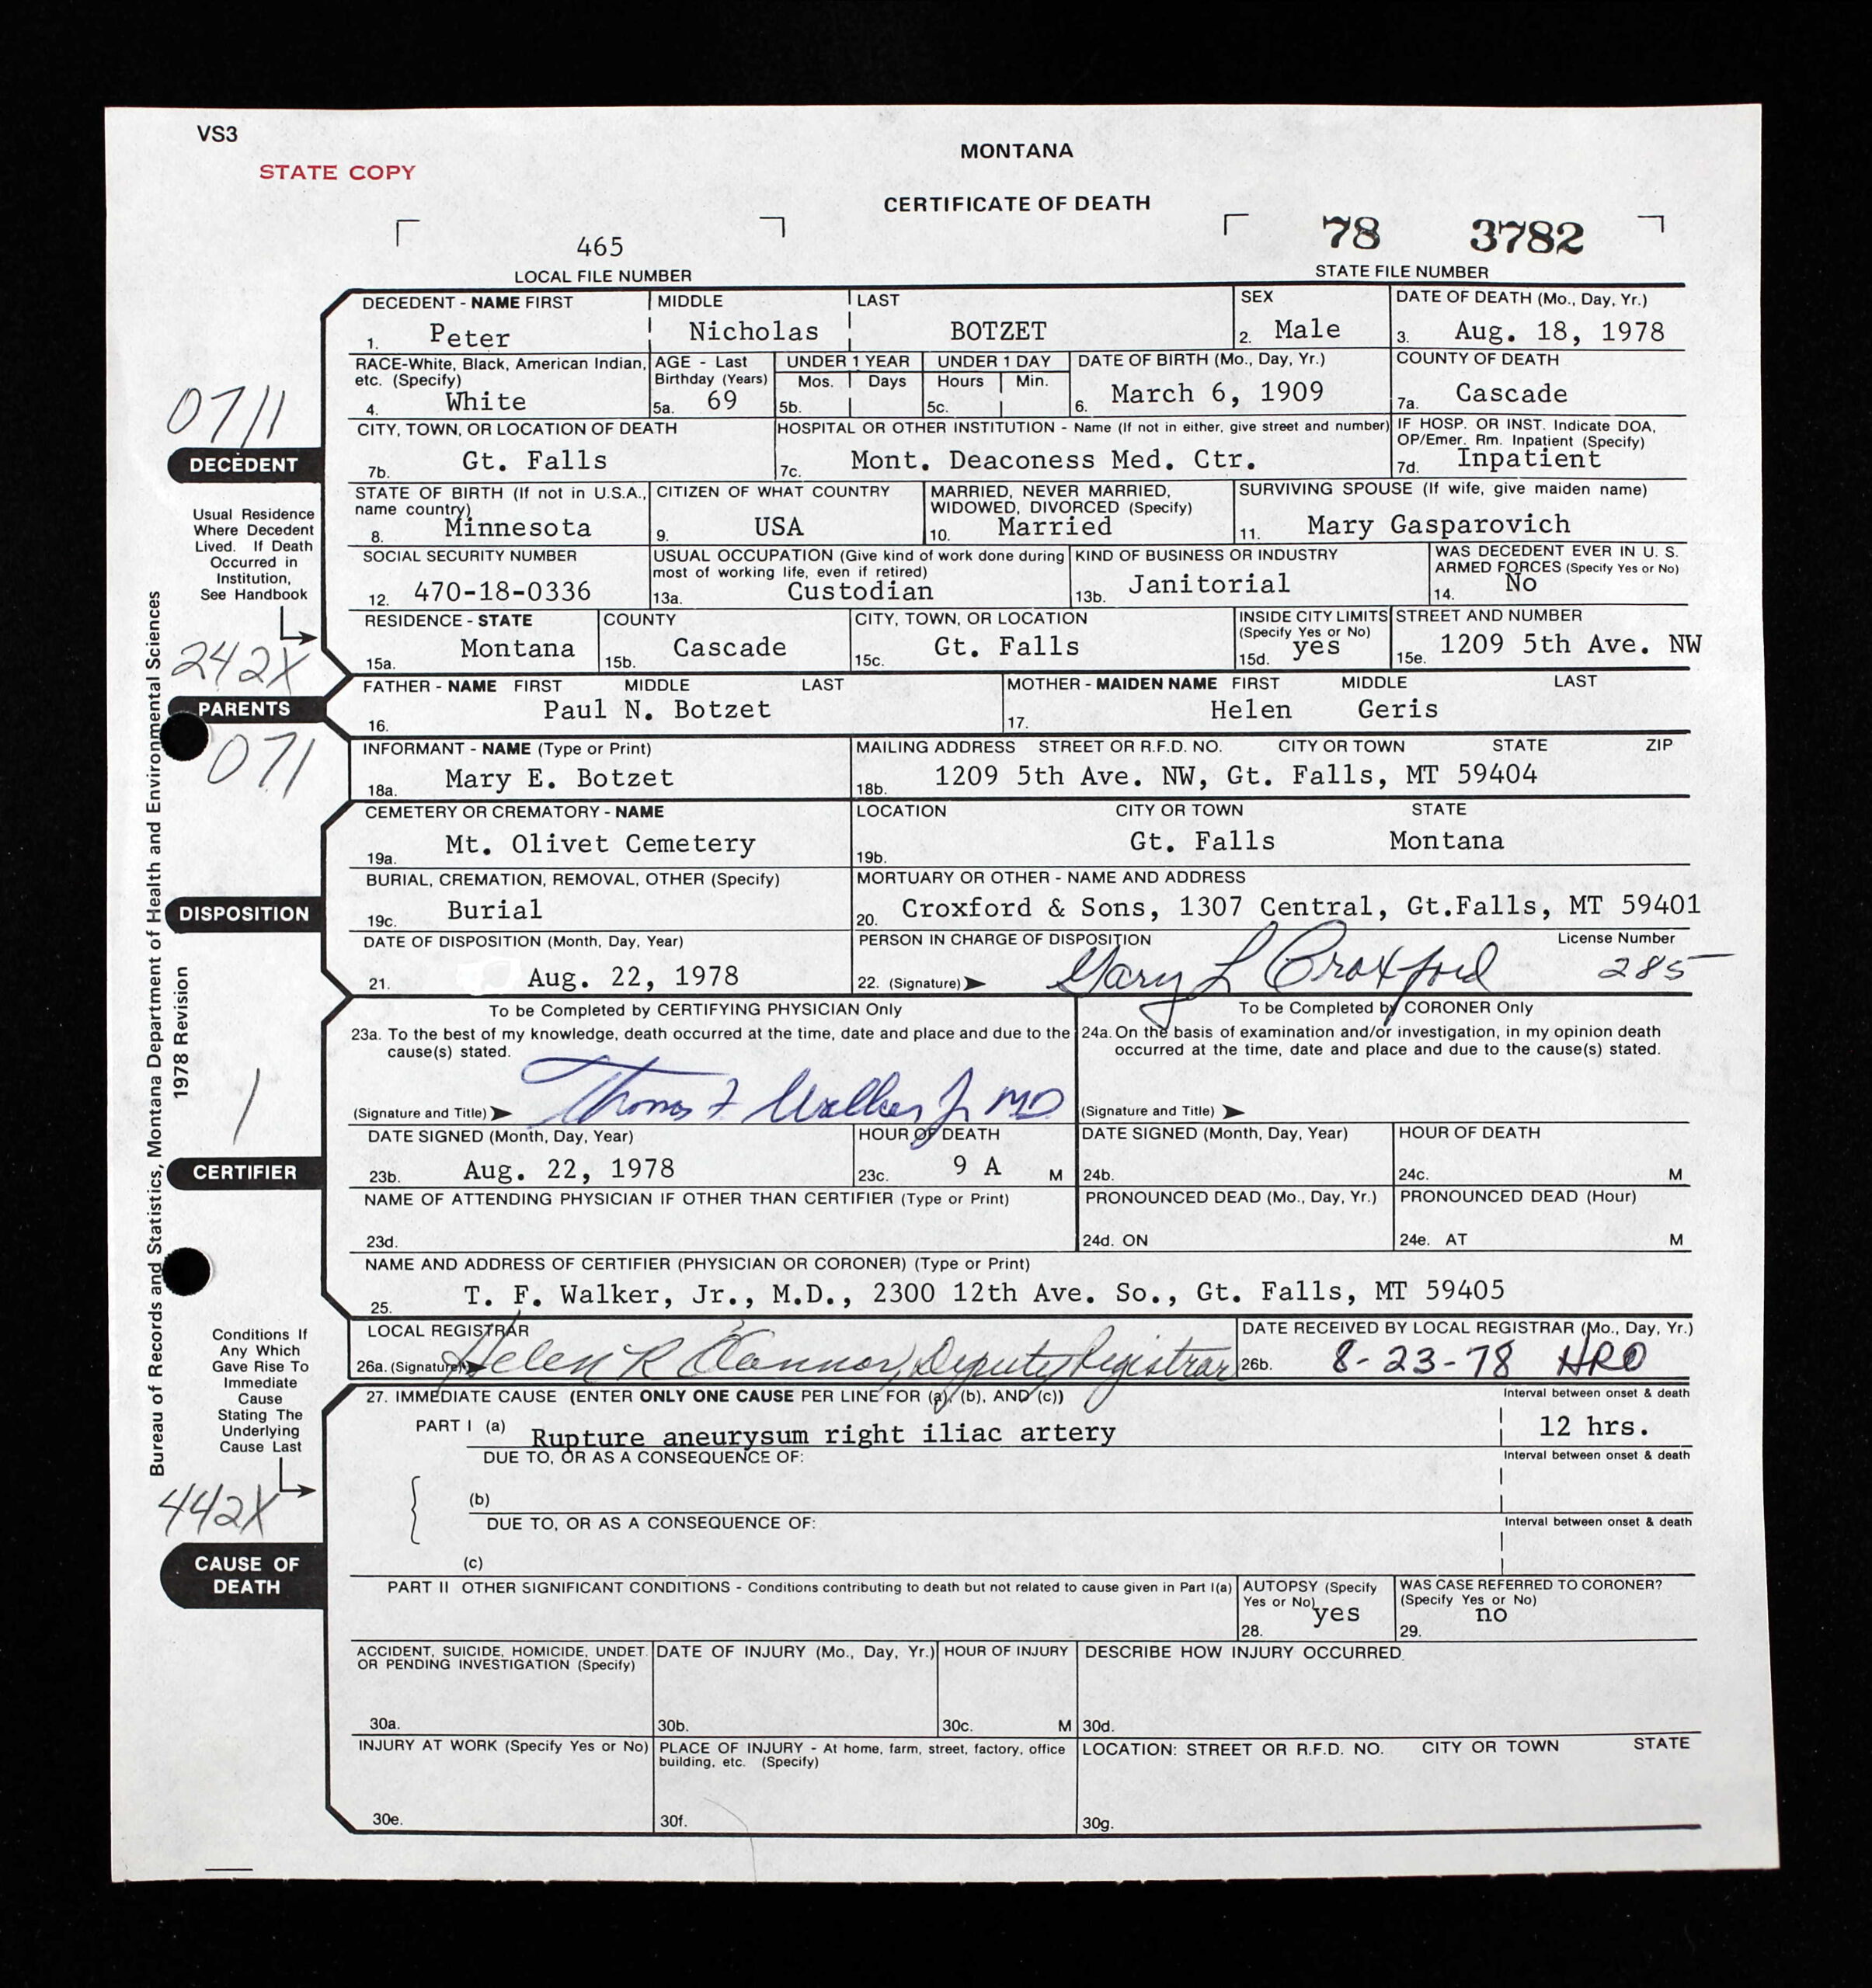 VS3
STATE COPY
MONTANA
CERTIFICATE OF DEATH
465
LOCAL FILE NUMBER
78 3782
STATE FILE NUMBER
DECEDENT - NAME FIRST MIDDLE LAST SEX DATE OF DEATH (Mo., Day, Yr.)
1. Peter Nicholas BOTZET 2. Male 3. Aug. 18, 1978
RACE-White, Black, American Indian, etc. (Specify)
4. White
AGE - Last Birthday (Years)
5a. 69
UNDER 1 YEAR
Mos. Days
5b.
UNDER 1 DAY
Hours Min.
5c.
DATE OF BIRTH (Mo., Day, Yr.)
6. March 6, 1909
COUNTY OF DEATH
7a. Cascade
0711
DECEDENT
CITY, TOWN, OR LOCATION OF DEATH
7b. Gt. Falls
HOSPITAL OR OTHER INSTITUTION - Name (If not in either, give street and number)
7c. Mont. Deaconess Med. Ctr.
IF HOSP. OR INST. Indicate DOA,
OP/Emer. Rm. Inpatient (Specify)
7d. Inpatient
STATE OF BIRTH (If not in U.S.A.,
name country)
8. Minnesota
CITIZEN OF WHAT COUNTRY
9. USA
MARRIED, NEVER MARRIED,
WIDOWED, DIVORCED (Specify)
10. Married
SURVIVING SPOUSE (If wife, give maiden name)
11. Mary Gasparovich
Usual Residence
Where Decedent
Lived. If Death
Occurred in
Institution,
See Handbook
SOCIAL SECURITY NUMBER
12. 470-18-0336
USUAL OCCUPATION (Give kind of work done during
most of working life, even if retired)
13a. Custodian
KIND OF BUSINESS OR INDUSTRY
13b. Janitorial
WAS DECEDENT EVER IN U. S.
ARMED FORCES (Specify Yes or No)
14. No
RESIDENCE - STATE
15a. Montana
COUNTY
15b. Cascade
CITY, TOWN, OR LOCATION
15c. Gt. Falls
INSIDE CITY LIMITS
(Specify Yes or No)
15d. yes
STREET AND NUMBER
15e. 1209 5th Ave. NW
242X
PARENTS
FATHER - NAME FIRST MIDDLE LAST
16. Paul N. Botzet
MOTHER - MAIDEN NAME FIRST MIDDLE LAST
17. Helen Geris
071
INFORMANT - NAME (Type or Print)
18a. Mary E. Botzet
MAILING ADDRESS STREET OR R.F.D. NO. CITY OR TOWN STATE ZIP
18b. 1209 5th Ave. NW, Gt. Falls, MT 59404
CEMETERY OR CREMATORY - NAME
19a. Mt. Olivet Cemetery
LOCATION CITY OR TOWN STATE
19b. Gt. Falls Montana
DISPOSITION
BURIAL, CREMATION, REMOVAL, OTHER (Specify)
19c. Burial
MORTUARY OR OTHER - NAME AND ADDRESS
20. Croxford & Sons, 1307 Central, Gt.Falls, MT 59401
DATE OF DISPOSITION (Month, Day, Year)
21. Aug. 22, 1978
PERSON IN CHARGE OF DISPOSITION License Number
22. (Signature) Gary L Croxford 285
Bureau of Records and Statistics, Montana Department of Health and Environmental Sciences
1978 Revision
To be Completed by CERTIFYING PHYSICIAN Only
23a. To the best of my knowledge, death occurred at the time, date and place and due to the
cause(s) stated.
(Signature and Title) Thomas F Walker Jr MD
To be Completed by CORONER Only
24a. On the basis of examination and/or investigation, in my opinion death
occurred at the time, date and place and due to the cause(s) stated.
(Signature and Title)
1
CERTIFIER
DATE SIGNED (Month, Day, Year)
23b. Aug. 22, 1978
HOUR OF DEATH
23c. 9 A M
DATE SIGNED (Month, Day, Year)
24b.
HOUR OF DEATH
24c. M
NAME OF ATTENDING PHYSICIAN IF OTHER THAN CERTIFIER (Type or Print)
23d.
PRONOUNCED DEAD (Mo., Day, Yr.)
24d. ON
PRONOUNCED DEAD (Hour)
24e. AT M
NAME AND ADDRESS OF CERTIFIER (PHYSICIAN OR CORONER) (Type or Print)
25. T. F. Walker, Jr., M.D., 2300 12th Ave. So., Gt. Falls, MT 59405
LOCAL REGISTRAR
26a. (Signature) Helen R O'Connor, Deputy Registrar
DATE RECEIVED BY LOCAL REGISTRAR (Mo., Day, Yr.)
26b. 8-23-78 HRO
Conditions If
Any Which
Gave Rise To
Immediate
Cause
Stating The
Underlying
Cause Last
442X
CAUSE OF
DEATH
27. IMMEDIATE CAUSE (ENTER ONLY ONE CAUSE PER LINE FOR (a), (b), AND (c)) Interval between onset & death
PART I (a) Rupture aneurysum right iliac artery 12 hrs.
DUE TO, OR AS A CONSEQUENCE OF: Interval between onset & death
(b)
DUE TO, OR AS A CONSEQUENCE OF: Interval between onset & death
(c)
PART II OTHER SIGNIFICANT CONDITIONS - Conditions contributing to death but not related to cause given in Part I(a)
AUTOPSY (Specify
Yes or No)
28. yes
WAS CASE REFERRED TO CORONER?
(Specify Yes or No)
29. no
ACCIDENT, SUICIDE, HOMICIDE, UNDET.
OR PENDING INVESTIGATION (Specify)
30a.
DATE OF INJURY (Mo., Day, Yr.)
30b.
HOUR OF INJURY
30c. M
DESCRIBE HOW INJURY OCCURRED
30d.
INJURY AT WORK (Specify Yes or No)
30e.
PLACE OF INJURY - At home, farm, street, factory, office
building, etc. (Specify)
30f.
LOCATION: STREET OR R.F.D. NO. CITY OR TOWN STATE
30g.